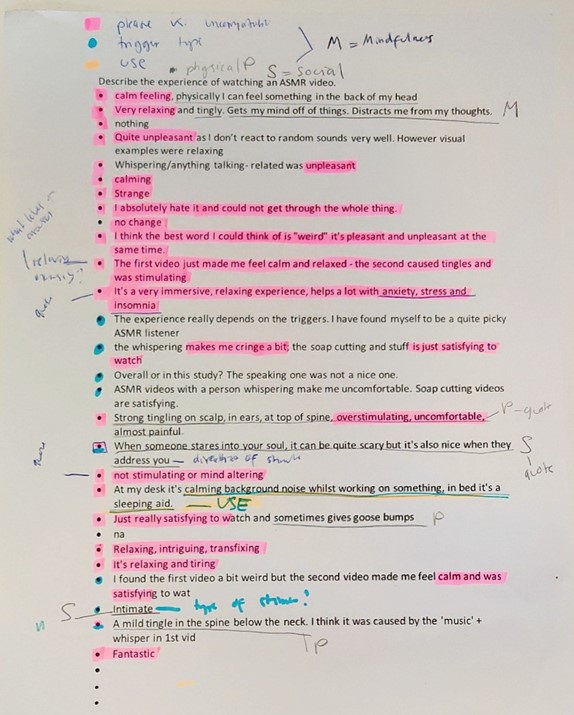 please vs. uncomfortable
trigger type
use
M = Mindfulness
• physical P S = social
Describe the experience of watching an ASMR video.
• calm feeling, physically I can feel something in the back of my head
• Very relaxing and tingly. Gets my mind off of things. Distracts me from my thoughts. M
• nothing
• Quite unpleasant as I don't react to random sounds very well. However visual
examples were relaxing
• Whispering/anything talking- related was unpleasant
• calming
• Strange
• I absolutely hate it and could not get through the whole thing.
• no change
• I think the best word I could think of is "weird" it's pleasant and unpleasant at the
same time.
• The first video just made me feel calm and relaxed - the second caused tingles and
was stimulating
• It's a very immersive, relaxing experience, helps a lot with anxiety, stress and
insomnia
quote
• The experience really depends on the triggers. I have found myself to be a quite picky
ASMR listener
• the whispering makes me cringe a bit; the soap cutting and stuff is just satisfying to
watch
• Overall or in this study? The speaking one was not a nice one.
• ASMR videos with a person whispering make me uncomfortable. Soap cutting videos
are satisfying.
• Strong tingling on scalp, in ears, at top of spine, overstimulating, uncomfortable, P - quote
almost painful.
• When someone stares into your soul, it can be quite scary but it's also nice when they S
address you
quote
• not stimulating or mind altering
• At my desk it's calming background noise whilst working on something, in bed it's a
sleeping aid. USE
• Just really satisfying to watch and sometimes gives goose bumps P
• na
• Relaxing, intriguing, transfixing
• It's relaxing and tiring
• I found the first video a bit weird but the second video made me feel calm and was
satisfying to wat
S • Intimate type of
• A mild tingle in the spine below the neck. I think it was caused by the 'music' +
whisper in 1st vid P
• Fantastic
•
•
•